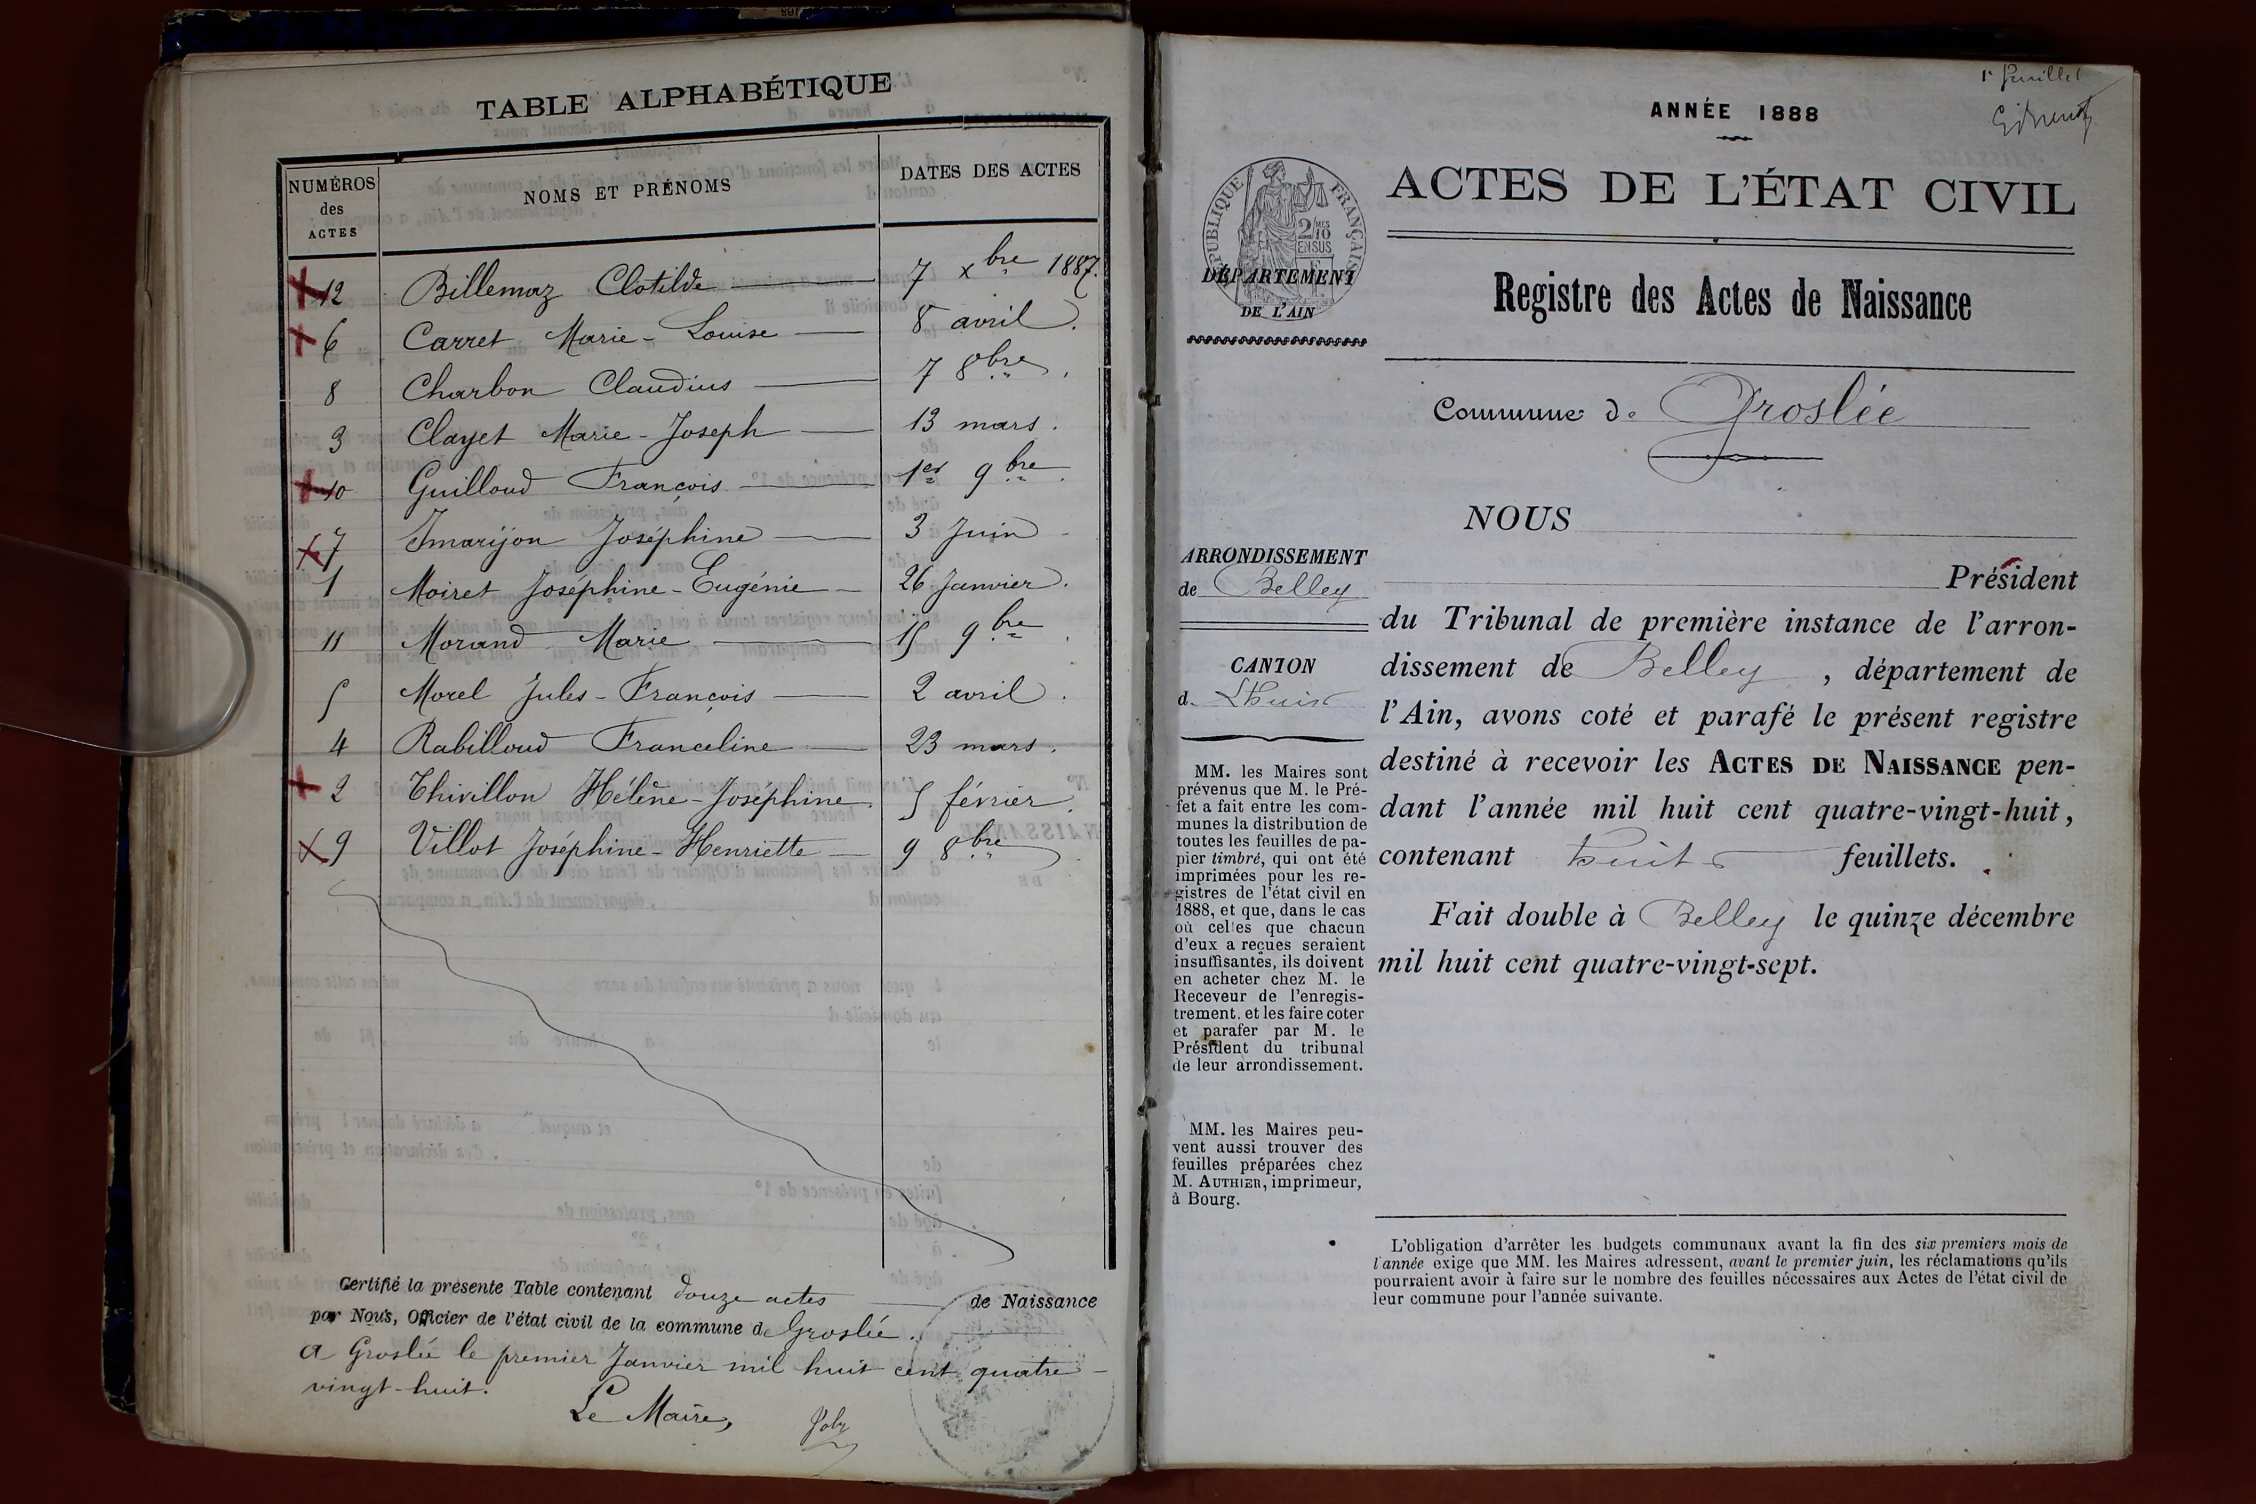 TABLE ALPHABÉTIQUE
NUMÉROS des ACTES NOMS ET PRÉNOMS DATES DES ACTES
12 Billemaz Clotilde 7 xbre 1887.
6 Carret Marie-Louise 8 avril.
8 Charbon Claudius 7 8bre.
3 Clayet Marie-Joseph 13 mars.
10 Guilloud François 1er 9bre.
7 Imarijon Joséphine 3 Juin
1 Moiret Joséphine-Eugénie 26 Janvier.
11 Morand Marie 15 9bre.
5 Morel Jules-François 2 avril.
4 Rabilloud Franceline 23 mars.
2 Thivillon Hélène-Joséphine 5 février.
9 Villot Joséphine-Henriette 9 8bre
Certifié la présente Table contenant douze actes de Naissance
par Nous, Officier de l'état civil de la commune de Groslée.
A Groslée le premier Janvier mil huit cent quatre-
vingt-huit.
Le Maire,
1er feuillet
ANNÉE 1888
ACTES DE L'ÉTAT CIVIL
RÉPUBLIQUE FRANÇAISE
2/10 MES
EN SUS
DÉPARTEMENT
DE L'AIN
Registre des Actes de Naissance
Commune de Groslée
NOUS
ARRONDISSEMENT
de Belley
CANTON
d. Lhuis
Président
du Tribunal de première instance de l'arron-
dissement de Belley, département de
l'Ain, avons coté et parafé le présent registre
destiné à recevoir les ACTES DE NAISSANCE pen-
dant l'année mil huit cent quatre-vingt-huit,
contenant huit feuillets.
Fait double à Belley le quinze décembre
mil huit cent quatre-vingt-sept.
MM. les Maires sont
prévenus que M. le Pré-
fet a fait entre les com-
munes la distribution de
toutes les feuilles de pa-
pier timbré, qui ont été
imprimées pour les re-
gistres de l'état civil en
1888, et que, dans le cas
où celles que chacun
d'eux a reçues seraient
insuffisantes, ils doivent
en acheter chez M. le
Receveur de l'enregis-
trement, et les faire coter
et parafer par M. le
Président du tribunal
de leur arrondissement.
MM. les Maires peu-
vent aussi trouver des
feuilles préparées chez
M. AUTHIER, imprimeur,
à Bourg.
L'obligation d'arrêter les budgets communaux avant la fin des six premiers mois de
l'année exige que MM. les Maires adressent, avant le premier juin, les réclamations qu'ils
pourraient avoir à faire sur le nombre des feuilles nécessaires aux Actes de l'état civil de
leur commune pour l'année suivante.